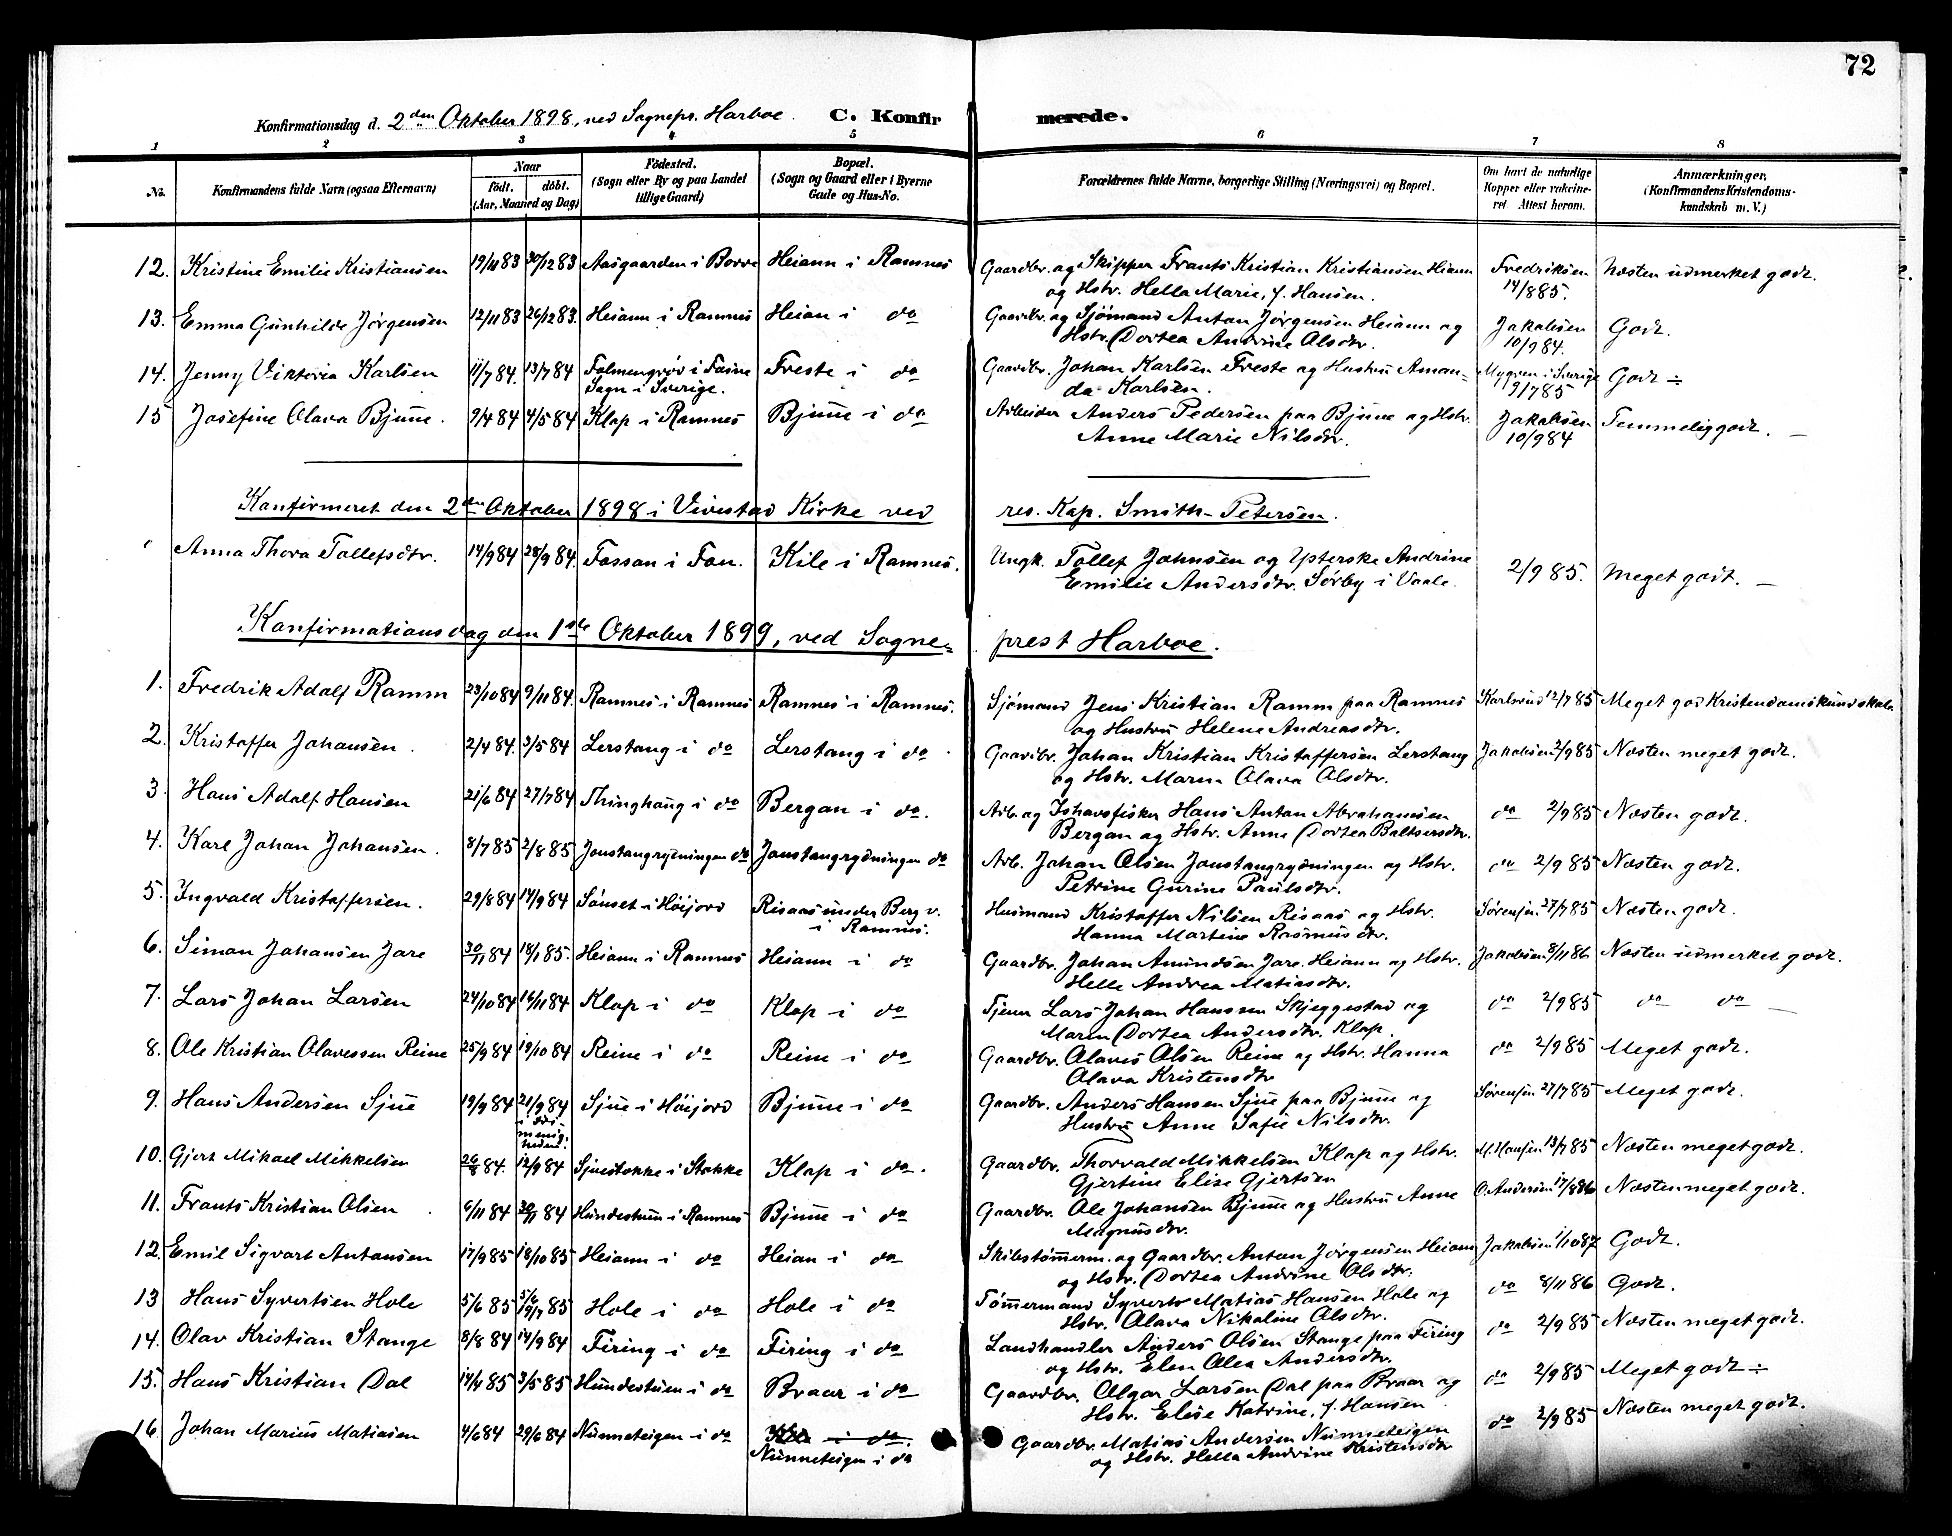 72
Konfirmationsdag d. 2den Oktober 1898, ved Sognepr. Harboe. C. Konfirmerede.
1 2 3 4 5 6 7 8
No. Konfirmandens fulde Navn (ogsaa Efternavn) Naar født. døbt. (Aar, Maaned og Dag) Fødested. (Sogn eller By og paa Landet tillige Gaard) Bopæl. (Sogn og Gaard eller i Byerne Gade og Hus-No. Forældrenes fulde Navne, borgerlige Stilling (Næringsvei) og Bopæl. Om havt de naturlige Kopper eller vakcineret Attest herom. Anmærkninger. (Konfirmandens Kristendomskundskab m. V.)
12. Kristine Emilie Kristiansen 19/11 83 30/12 83 Aasgaarden i Borre Heiann i Ramnes Gaardbr. og Skipper Frants Kristian Kristiansen Hiann Fredriksen Næsten udmerket godt.
og Hstr. Hella Marie, f. Hansen. 14/8 85.
13. Emma Gunhilde Jørgensen 12/11 83 26/12 83. Heiann i Ramnes Heian i do Gaardbr. og Sjømand Anton Jørgensen Heiann og Jakobsen Godt.
Hstr. Dortea Andrine Olsdtr. 10/9 84.
14. Jenny Viktoria Karlsen 11/7 84. 13/7 84 Folmengrøv i Fosine Freste i do Gaardbr. Johan Karlsen Freste og Hustru Aman- Mygren i Sverige Godt ÷
Sogn i Sverige. da Karlsen. 9/7 85
15 Josefine Olava Bjune. 9/4 84 4/5 84 Klop i Ramnes Bjune i do Arbeider Anders Pedersen paa Bjune og Hstr. Jakobsen Temmelig godt. —
Anne Marie Nilsdtr. 10/9 84
Konfirmeret den 2den Oktober 1898 i Vivestad Kirke ved res. Kap. Smith-Petersen.
Anna Thora Tollefsdtr. 14/9 84 28/9 84. Fossan i Fon. Kile i Ramnes. Ungk. Tollef Johnsen og Ysterske Andrine 2/9 85. Meget godt. —
Emilie Andersdtr. Sørby i Vaale.
Konfirmationsdag den 1ste Oktober 1899, ved Sogneprest Harboe.
1. Fredrik Adolf Ramm 23/10 84 9/11 84. Ramnes i Ramnes Ramnes i Ramnes. Sjømand Jens Kristian Ramm paa Ramnes Karlsrud 12/7 85 Meget god Kristendomskundskab
og Hustru Helene Andreasdtr.
2. Kristoffer Johansen. 2/4 84. 3/5 84 Lerstang i do Lerstang i do Gaardbr. Johan Kristian Kristoffersen Lerstang Jakobsen 2/9 85 Næsten meget godt.
og Hstr. Maren Olava Olsdtr.
3. Hans Adolf Hansen 21/6 84 27/7 84 Thinghaug i do Bergan i do. Arb. og Ishavsfisker Hans Anton Abrahamsen do 2/9 85 Næsten godt.
Bergan og Hstr. Anne Dortea Baltsersdtr.
4. Karl Johan Johansen. 8/7 85 2/8 85 Jonstangrydningen do Jonstangrydningen do Arb. Johan Olsen Jonstangrydningen og Hstr. do 2/9 85 Næsten godt.
Petrine Gurine Paulsdtr.
5. Ingvald Kristoffersen. 29/8 84 14/9 84 Sønset i Høijord Risaas under Berg v. Husmand Kristoffer Nilsen Risaas og Hstr. Sørensen 27/7 85 Næsten godt.
i Ramnes. Hanna Martine Rasmusdtr.
6. Simon Johansen Jare 30/11 84 18/1 85. Heiann i Ramnes Heiann i do Gaardbr. Johan Amundsen Jare. Heiann og Hstr. Jakobsen 8/11 86 Næsten udmerket godt.
Helle Andrea Matiasdtr.
7. Lars Johan Larsen 24/10 84 16/11 84 Klop i do Klop i do Tjener Lars Johan Hanssen Skjeggestad og do 2/9 85 do do —
Maren Dortea Andersdtr. Klop.
8. Ole Kristian Olavessen Reine 25/9 84 19/10 84 Reine i do Reine i do Gaardbr. Olaves Olsen Reine og Hstr. Hanna do 2/9 85 Meget godt.
Olava Kristensdtr
9. Hans Andersen Sjue 19/9 84 21/9 84 Sjue i Høijord Bjune i do Gaardbr. Anders Hansen Sjue paa Bjune og Sørensen 27/7 85 Meget godt.
Hustru Anne Sofie Nilsdtr.
10. Gjert Mikael Mikkelsen 26/8 84. 12/9 84 Sjuestokke i Stokke Klop i do. Gaardbr. Thorvald Mikkelsen Klop og Hstr. M. Hansen 13/7 85 Næsten meget godt.
Gjertine Elise Gjertsen
11. Frants Kristian Olsen 6/11 84 30/11 84 Hundestuen i Ramnes Bjune i do Gaardbr. Ole Johansen Bjune og Hustru Anne O. Andersen 17/8 86 Næsten meget godt.
Magnusdtr.
12. Emil Sigvart Antonsen 17/9 85 18/10 85 Heiann i do Heian i do Skibstømerm. og Gaardbr. Anton Jørgensen Heiann Jakobsen 1/10 87 Godt.
og Hstr. Dortea Andrine Olsdtr.
13 Hans Syvertsen Hole 5/6 85 5/6 19/7 85 Hole i do Hole i do Tømmermand Syvert Matias Hansen Hole og do 8/11 86 Godt.
Hstr. Olava Nikoline Olsdtr.
14. Olav Kristian Stange 8/8 84 14/9 84 Firing i do Firing i do Landhandler Anders Olsen Stange paa Firing do 2/9 85 Næsten meget godt.
og Hstr. Elen Olea Andersdtr.
15. Hans Kristian Dal 14/4 85 3/5 85 Hundestuen i do Braar i do Gaardbr. Olgar Larsen Dal paa Braar og do 2/9 85 Meget godt ÷
Hstr. Elise Katrine, f. Hansen
16. Johan Marius Matiasen 4/6 84 29/6 84 Nunneteigen i do Nunneteigen i do Gaardbr Matias Andersen Nunneteigen do 2/9 85 Næsten meget godt.
og Hstr. Hella Andrine Kristensdtr